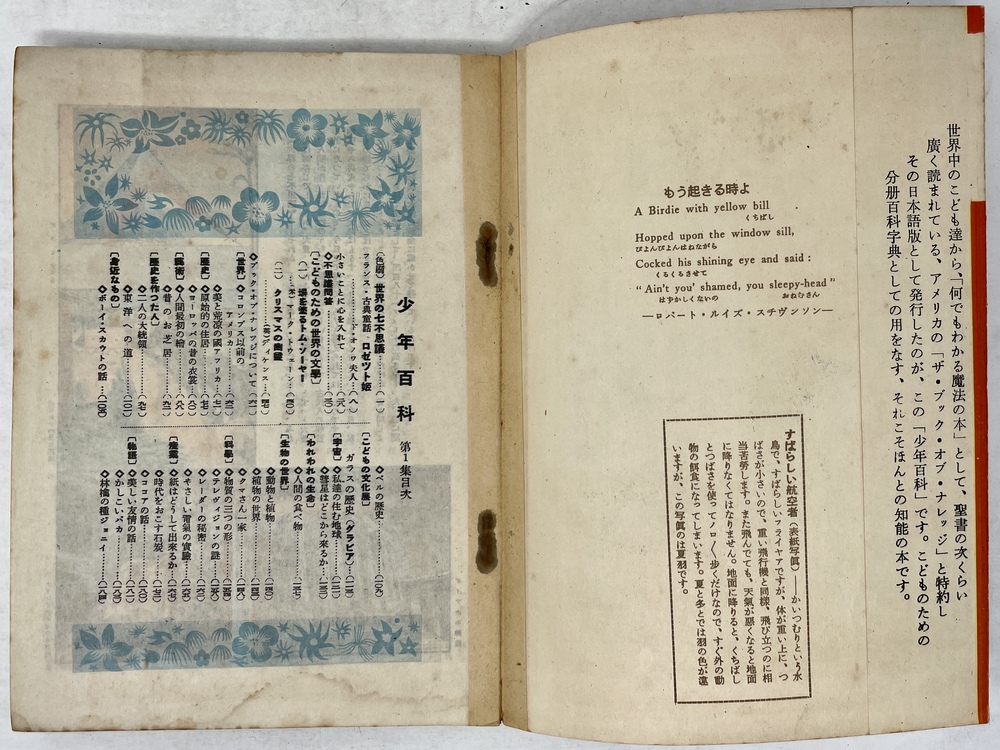 世界中のこども達から、「何でもわかる魔法の本」として、聖書の次くらい
廣く読まれている、アメリカの「ザ・ブック・オブ・ナレッジ」と特約し
その日本語版として発行したのが、この「少年百科」です。こどものための
分册百科字典としての用をなす、それこそほんとの知能の本です。
もう起きる時よ
A Birdie with yellow bill
くちばし
Hopped upon the window sill,
ぴょんぴょんはねながら
Cocked his shining eye and said :
くるくるさせて
"Ain't you' shamed, you sleepy-head"
はずかしくないの おねむさん
―ロバート・ルイズ・スチヴンソン―
すばらしい航空者（表紙写眞）――かいつむりという水
鳥で、すばらしいフライヤアですが、体が重い上に、つ
ばさが小さいので、重い飛行機と同様、飛び立つのに相
当苦勞します。また飛んでても、天氣が悪くなると地面
に降りなくてはなりません。地面に降りると、くちばし
とつばさを使ってノロノロ歩くだけなので、すぐ外の動
物の餌食になってしまいます。夏と冬とでは羽の色が違
いますが、この写眞のは夏羽です。
少年百科 第1集目次
〔色刷〕世界の七不思議……（一）
フランス・古典童話 ロゼット姫
……ド・オノワ夫人…（八）
小さいことに心を入れて……
◇不思議問答……
〔こどものための世界の文學〕
（一） 塀を塗るトム・ソーヤー
……（米）マーク・トウェーン…
（二） クリスマスの幽靈
……（英）ディケンス…
◇ブック・オブ・ナレッジについて…
〔世界〕◇コロンブス以前の
アメリカ……
◇美と荒凉の國アフリカ…
〔歴史〕◇原始的の住居……
◇ヨーロッパの昔の衣裳…
〔藝術〕◇人間最初の繪……
◇昔のお芝居……
〔歴史を作つた人〕
◇二人の大統領……
◇東洋への道……
〔身近なもの〕
◇ボーイ・スカウトの話…
◇ベルの歴史……
〔こどもの文化展〕
ガラスの歴史（グラビア）…
〔宇宙〕◇私達の住む地球…
◇彗星はどこから來るか…
〔われわれの生命〕
◇人間の食べ物……
〔生物の世界〕
◇動物と植物……
◇植物の世界……
◇クマさん一家……
〔科學〕◇物質の三つの形……
◇テレヴィジョンの謎…
◇レーダーの秘密……
◇やさしい電氣の實驗…
〔産業〕◇紙はどうして出来るか…
◇時代をおこす石炭……
◇ココアの話……
〔物語〕◇美しい友情の話……
◇かしこいバカ……
◇林檎の種ジョニイ……